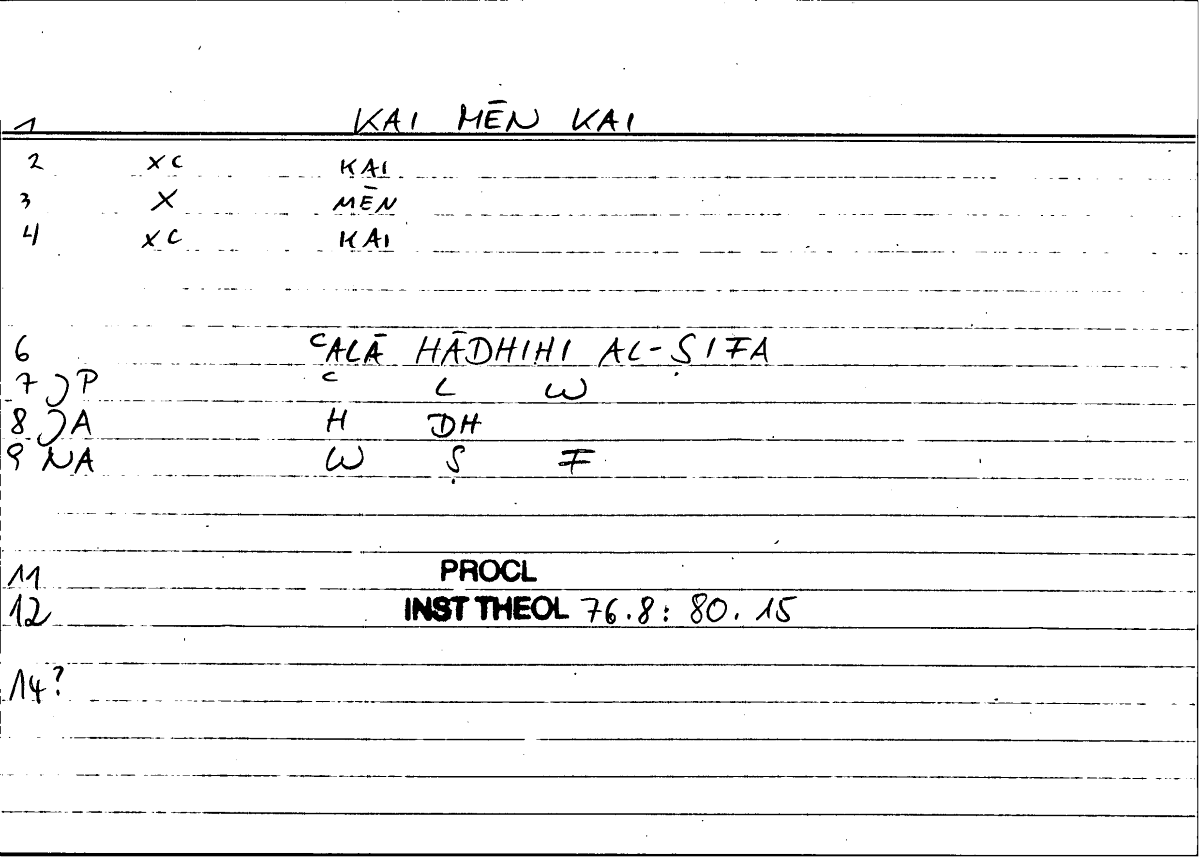 1 KAI MĒN KAI
2 XC KAI
3 X MĒN
4 XC KAI
6 ᶜALĀ HĀDHIHI AL-ṢIFA
7 ) P ᶜ L W
8 ) A H DH
9 NA W Ṣ F
11 PROCL
12 INST THEOL 76.8: 80.15
14?